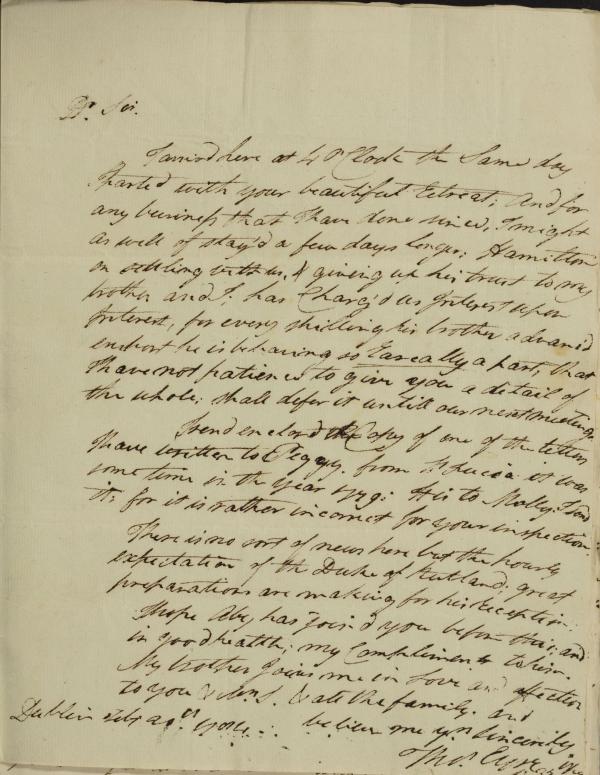 Dr. Sir.
I arriv'd here at 4 O'Clock the Same day
I parted with your beautiful Retreat; And for
any business that I have done since, I might
as well of stay'd a few days longer: Hamilton
on settling with us, & giving up his trust to my
brother and I. has Charg'd us Interest upon
Interest, for every shilling his brother advanc'd
in short he is behaving so a part, that
I have not patience to give you a detail of
the whole; shall defer it untill our next meeting.
I send enclos'd the Copy of one of the letters
I have written to Peggy. from St. Lucia it was
sometime in the year 1779: to Molly I send
it; for it is rather incorrect for your inspection.
There is no sort of news here but the hourly
expectation of the Duke of Rutland; great
preparations are making for his Reception.
I hope Abe, has join'd you before this; and
in good health; my Compliments to him.
My brother Joins me in Love and affection
to you & Mrs. S. & all the family. and
believe me yrs. sincerely
Dublin Feb. 1784
Thos. Eyre